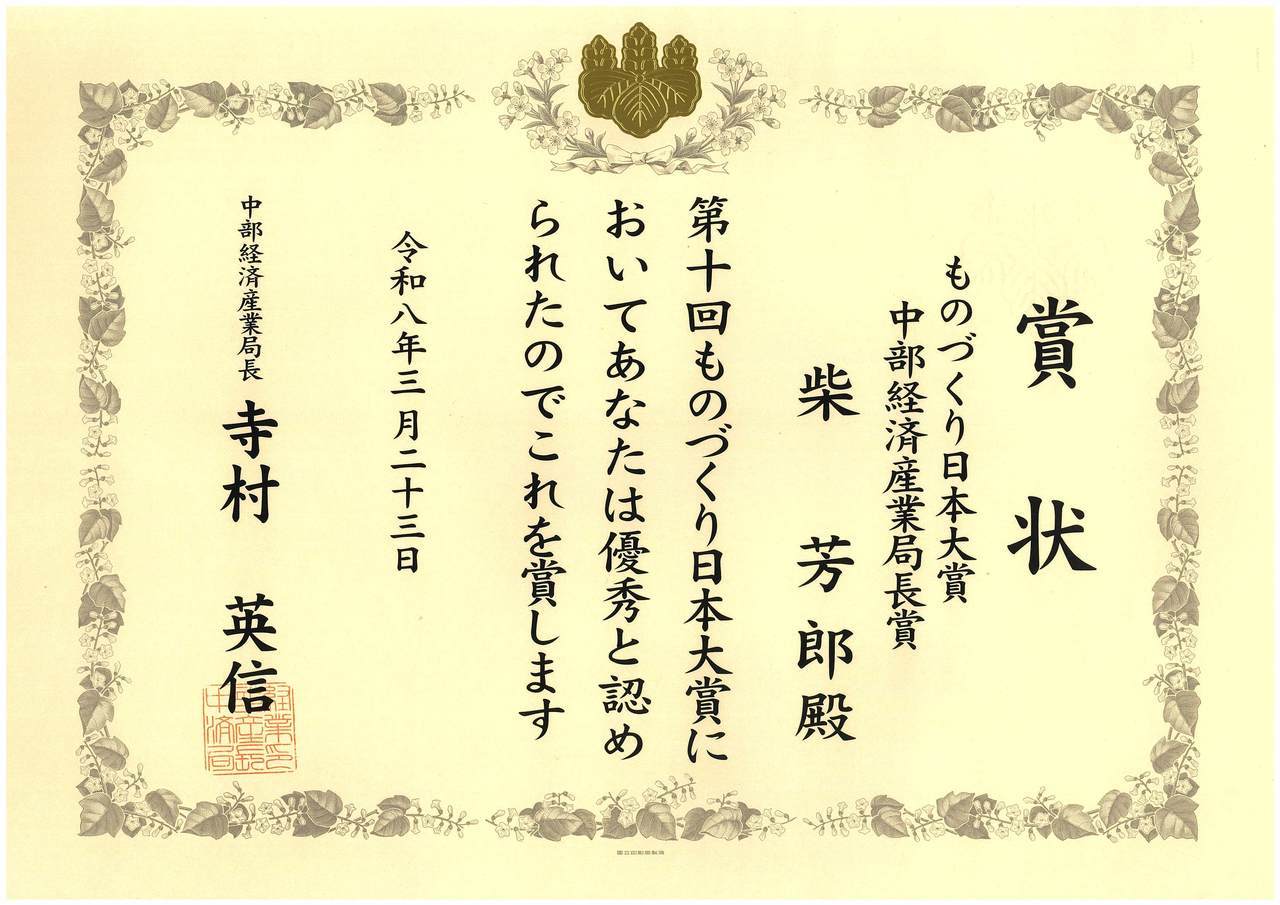 賞状
ものづくり日本大賞
中部経済産業局長賞
柴 芳郎殿
第十回ものづくり日本大賞に
おいてあなたは優秀と認め
られたのでこれを賞します
令和八年三月二十三日
中部経済産業局長 寺村 英信